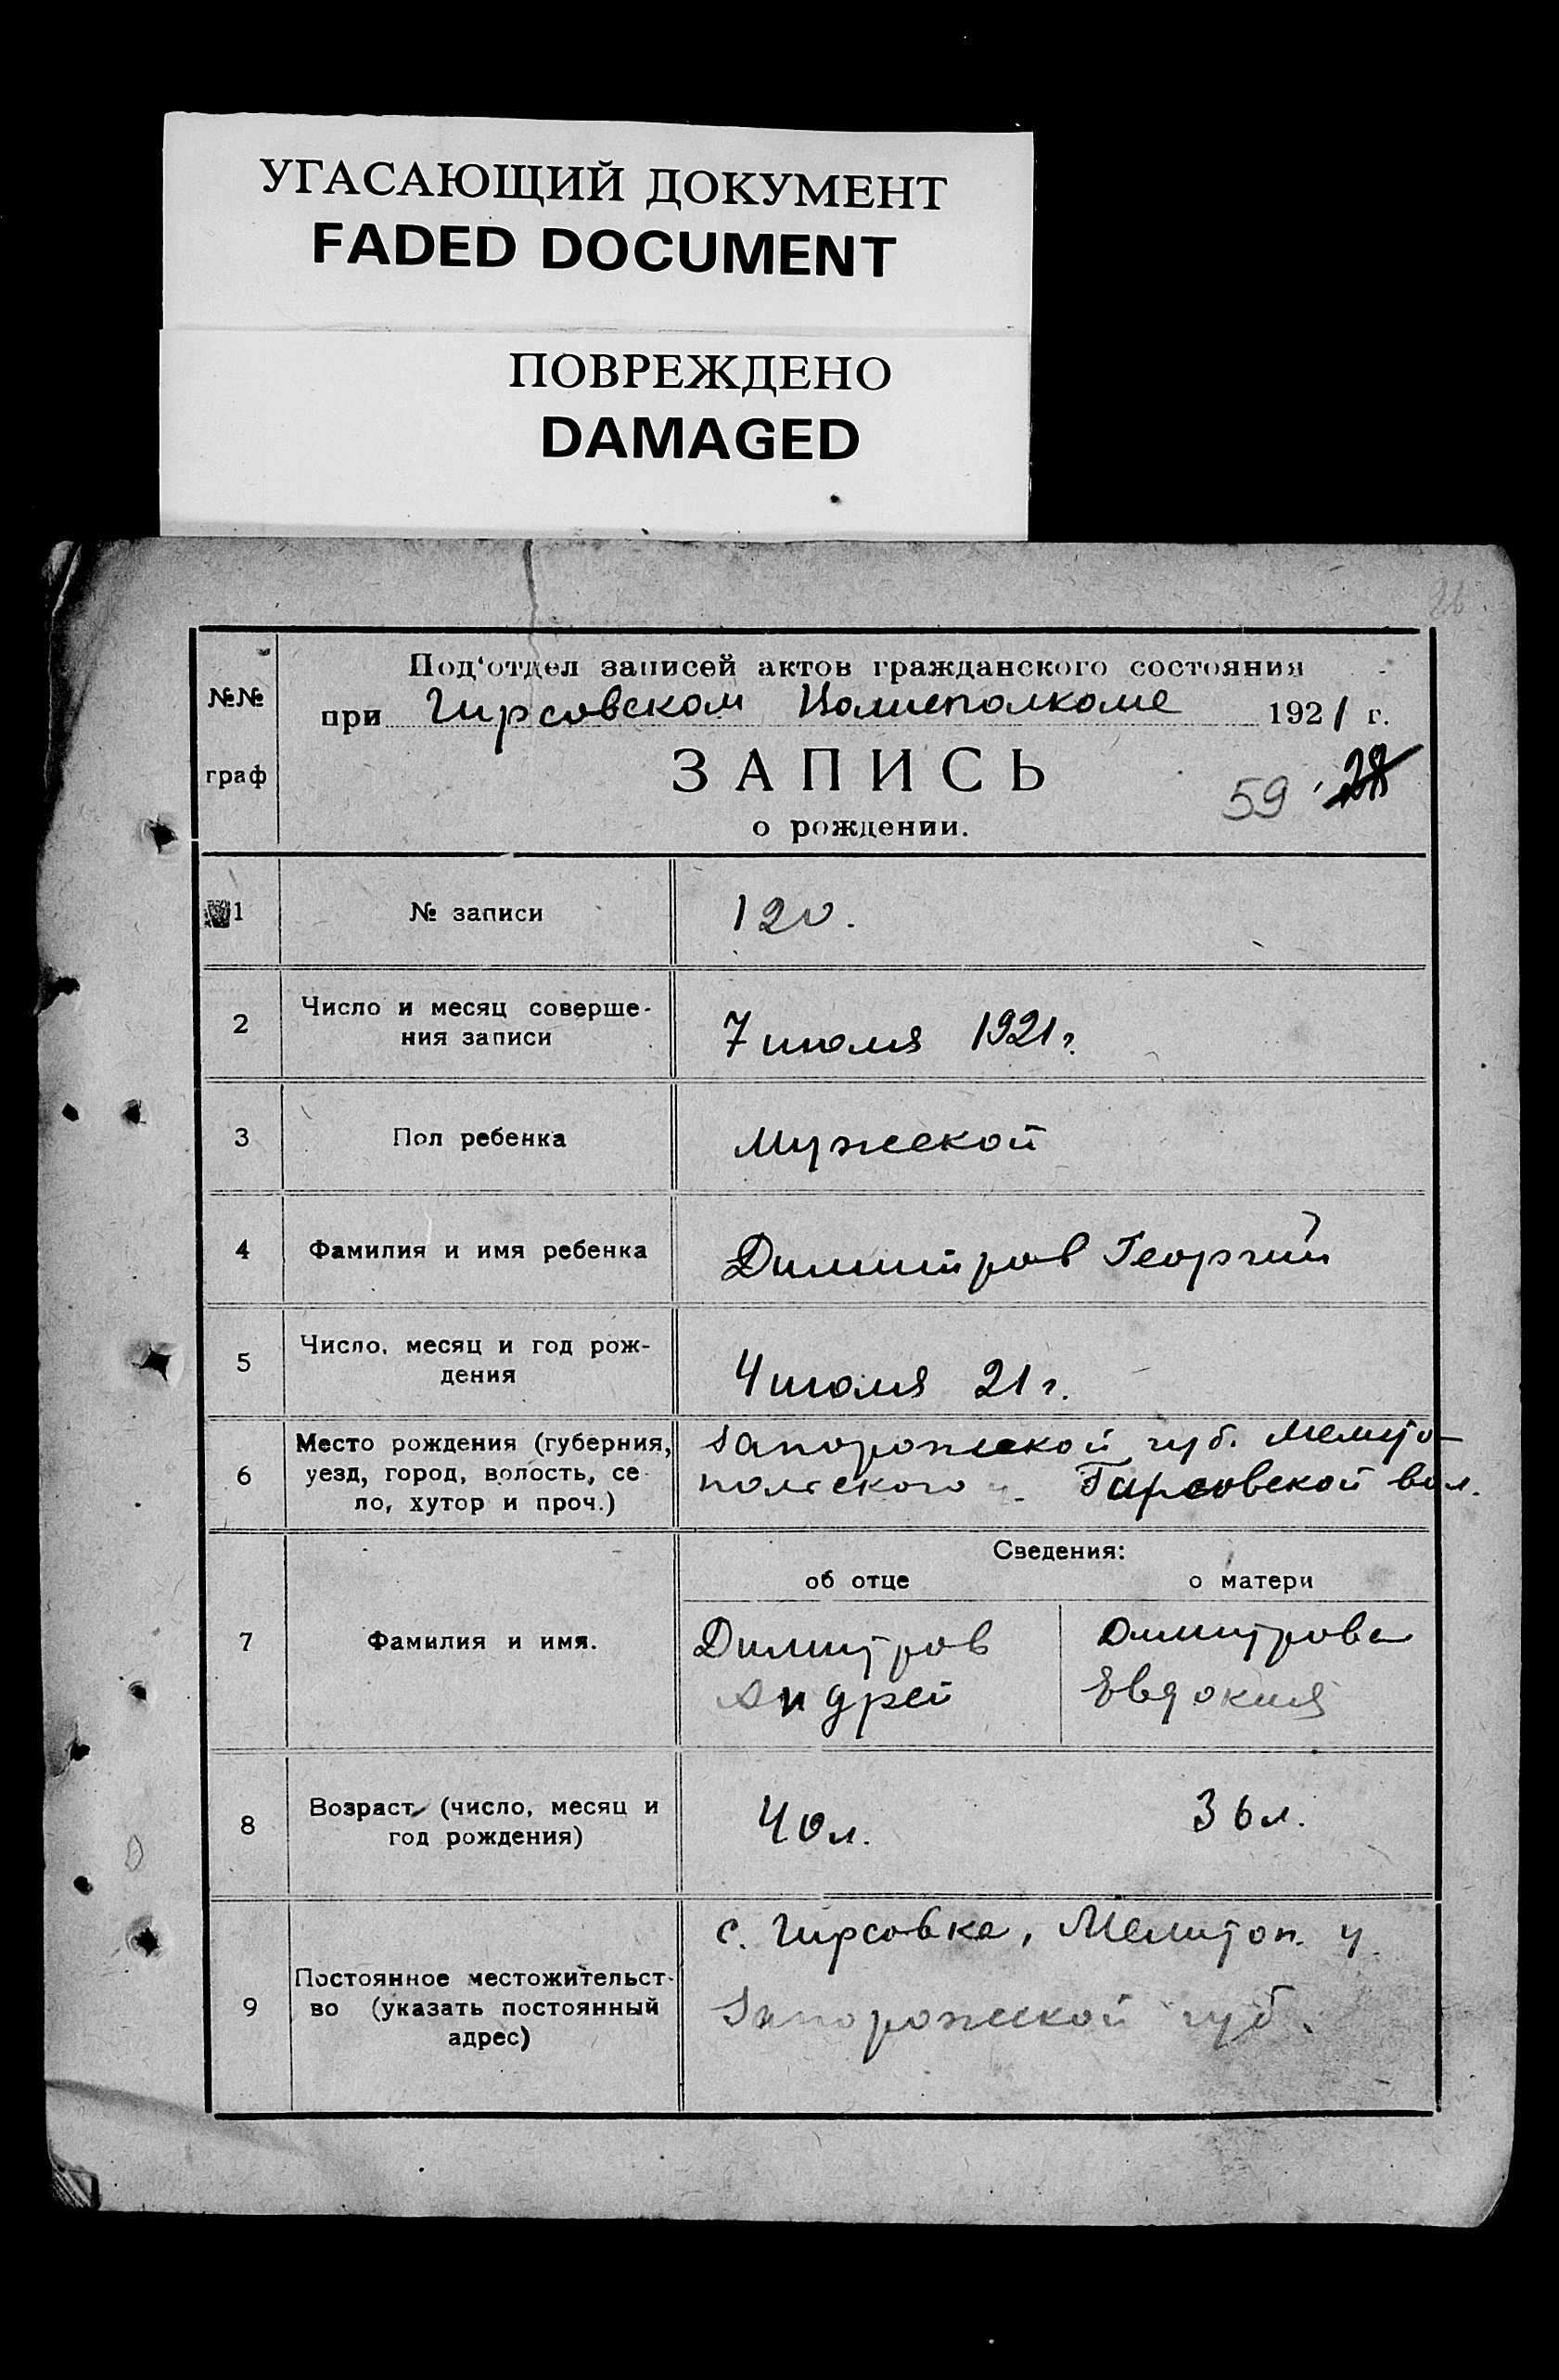 УГАСАЮЩИЙ ДОКУМЕНТ
FADED DOCUMENT
ПОВРЕЖДЕНО
DAMAGED
№№
граф
Под‘отдел записей актов гражданского состояния
при Гирсовском Волисполкоме 1921 г.
ЗАПИСЬ
59
о рождении.
1 № записи 120.
2 Число и месяц соверше-
ния записи
7 июля 1921 г.
3 Пол ребенка Мужской
4 Фамилия и имя ребенка Димитров Георгий
5 Число, месяц и год рож-
дения
4 июля 21 г.
6 Место рождения (губерния,
уезд, город, волость, се-
ло, хутор и проч.)
Запорожской губ. Мелито-
польского у. Гирсовской вол.
Сведения:
об отце о матери
7 Фамилия и имя.
Димитров Димитрова
Андрей Евдокия
8 Возраст (число, месяц и
год рождения)
40 л. 36 л.
9 Постоянное местожительст-
во (указать постоянный
адрес)
с. Гирсовка, Мелитоп. у.
Запорожской губ.